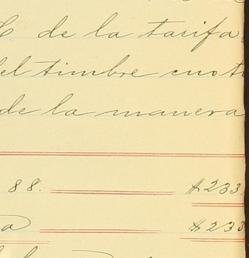 C de la tarifa
el timbre cuot
de la manera
88. $233
a $233